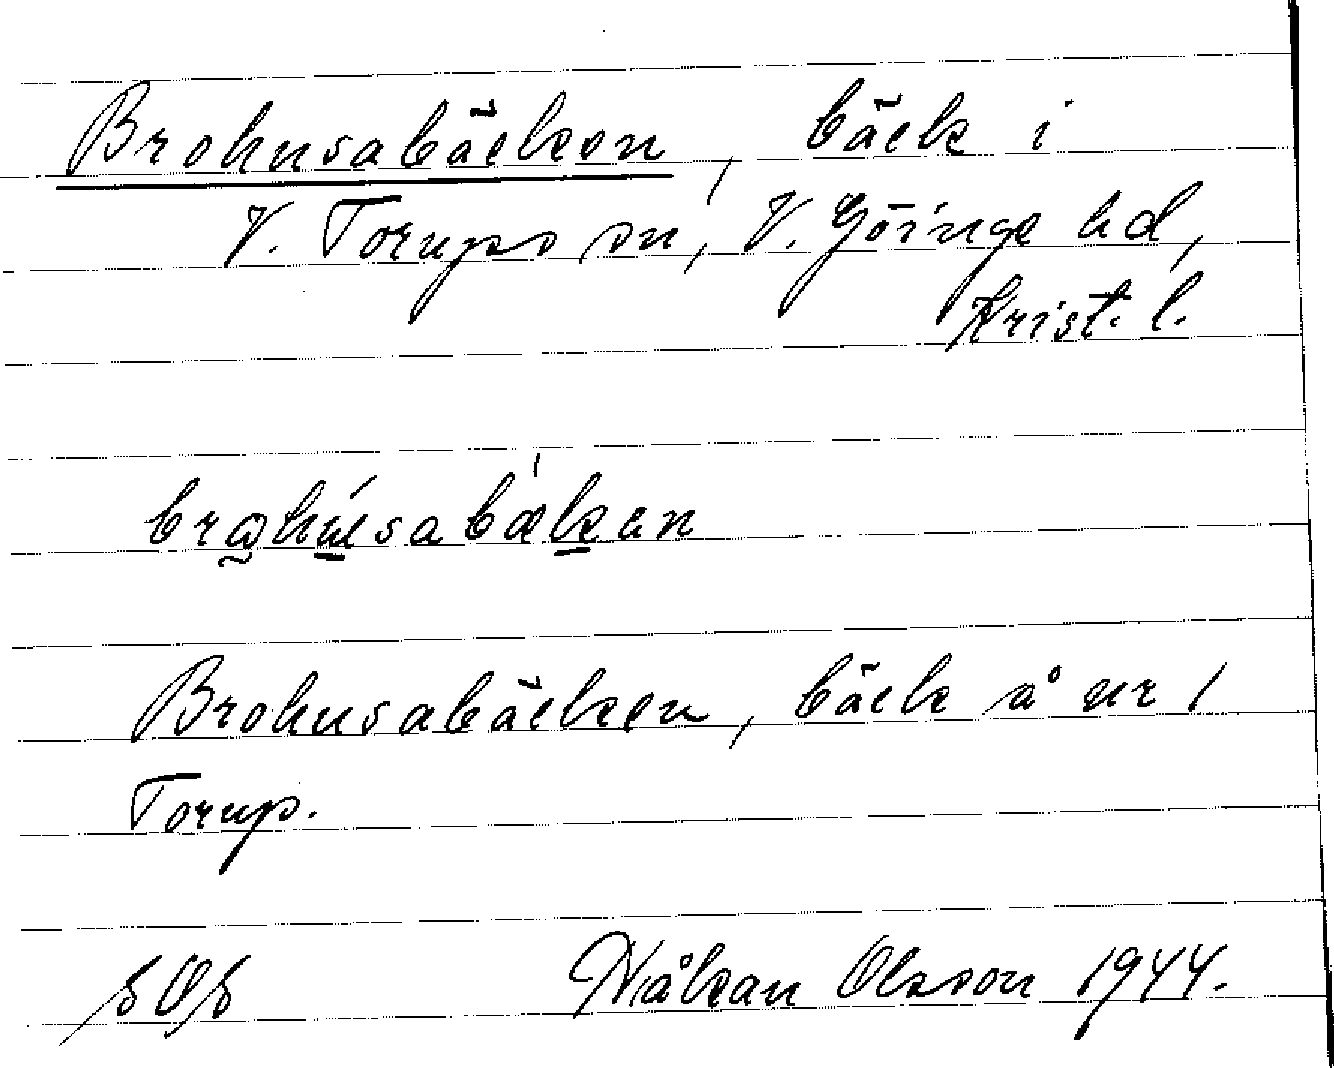 Brohusabäcken, bäck i
V. Torups sn, V. Göinge hd,
Krist. l.
Brohusabäcken, bäck å nr 1
Torup.
Håkan Olsson 1944.